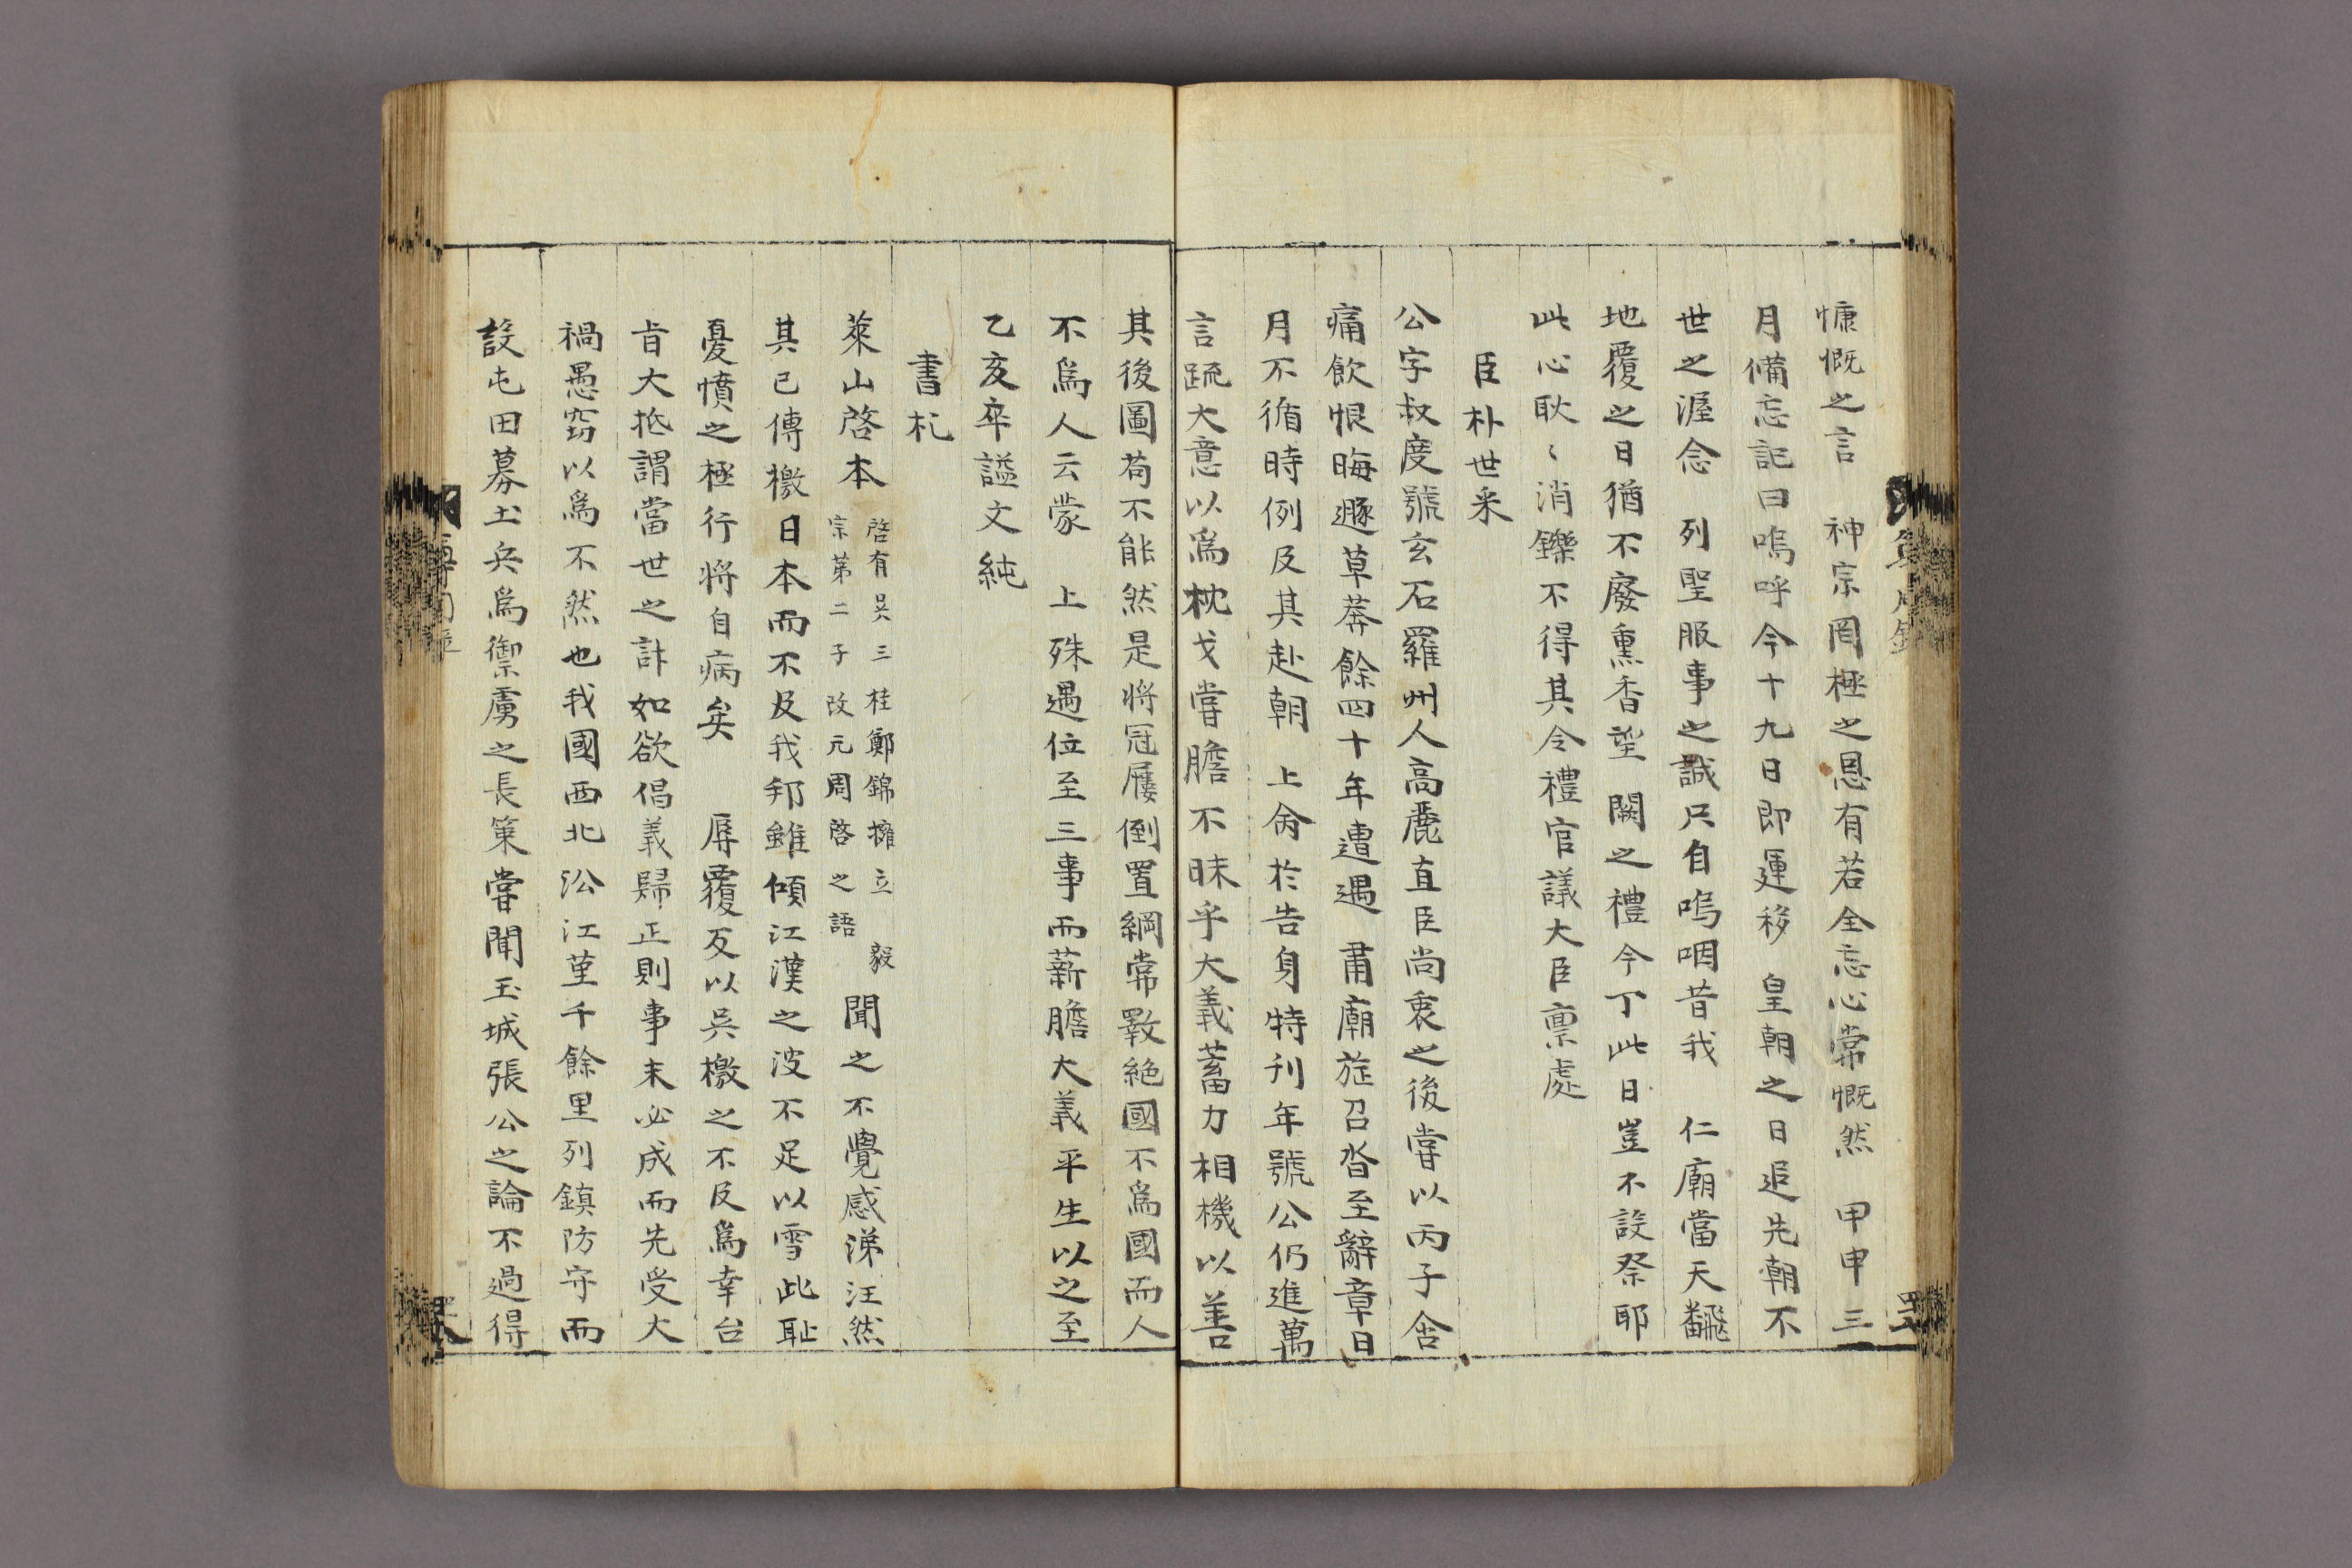 慷慨之言 神宗罔極之恩有若全忘心常慨然 甲申三
月備忘記曰嗚呼今十九日即運移 皇朝之日追先朝不
世之渥念 列聖服事之誠只自嗚咽昔我 仁廟當天飜
地覆之日猶不廢熏香望 闕之禮今丁此日豈不設祭耶
此心耿〻消鑠不得其令禮官議大臣禀處
臣朴世采
公字叔度號玄石羅州人高麗直臣尚衷之後嘗以丙子含
痛飮恨晦遯草莽餘四十年遭遇 肅廟旌召沓至辭章日
月不循時例及其赴朝 上侖於告身特刋年號公仍進萬
言䟽大意以爲枕戈嘗膽不昧乎大義蓄力相機以善
其後圖苟不能然是将冠屨倒置綱常斁絶國不爲國而人
不爲人云蒙 上殊遇位至三事而薪膽大義平生以之至
乙亥卒謚文純
書札
萊山啓本
啓有吳三桂鄭錦擁立 毅
宗第二子改元周啓之語
聞之不覺感涕汪然
其已傳檄日本而不及我邦雖傾江漢之波不足以雪此恥
憂憤之極行将自病矣 辱覆反以吳檄之不及爲幸台
㫖大抵謂當世之計如欲倡義歸正則事未必成而先受大
禍愚窃以爲不然也我國西北㳂江堇千餘里列鎮防守而
設屯田募土兵爲禦虜之長策嘗聞玉城張公之論不過得